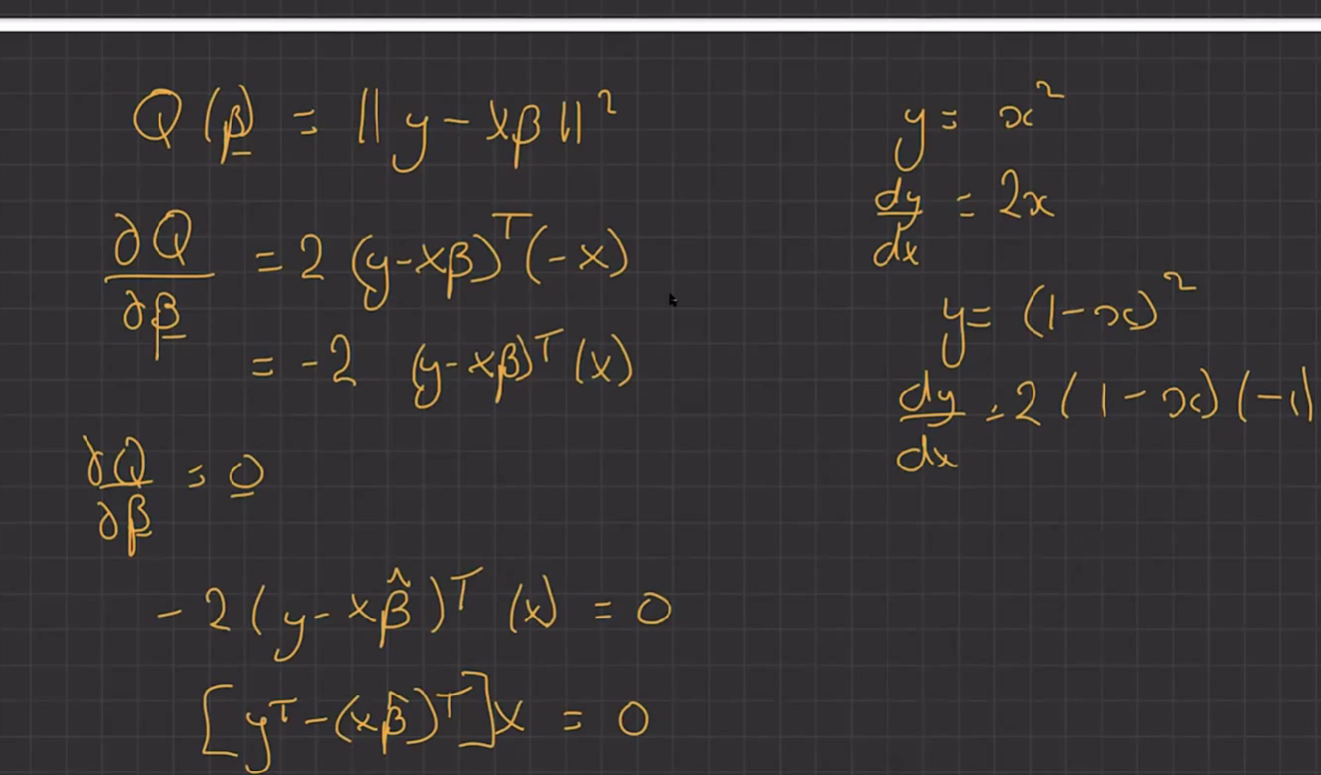 Q(β) = ||y - xβ||²
∂Q/∂β = 2 (y-xβ)ᵀ(-x)
= -2 (y-xβ)ᵀ(x)
∂Q/∂β = 0
-2(y-xβ̂)ᵀ(x) = 0
[yᵀ-(xβ̂)ᵀ]x = 0
y = x²
dy/dx = 2x
y = (1-x)²
dy/dx = 2(1-x)(-1)